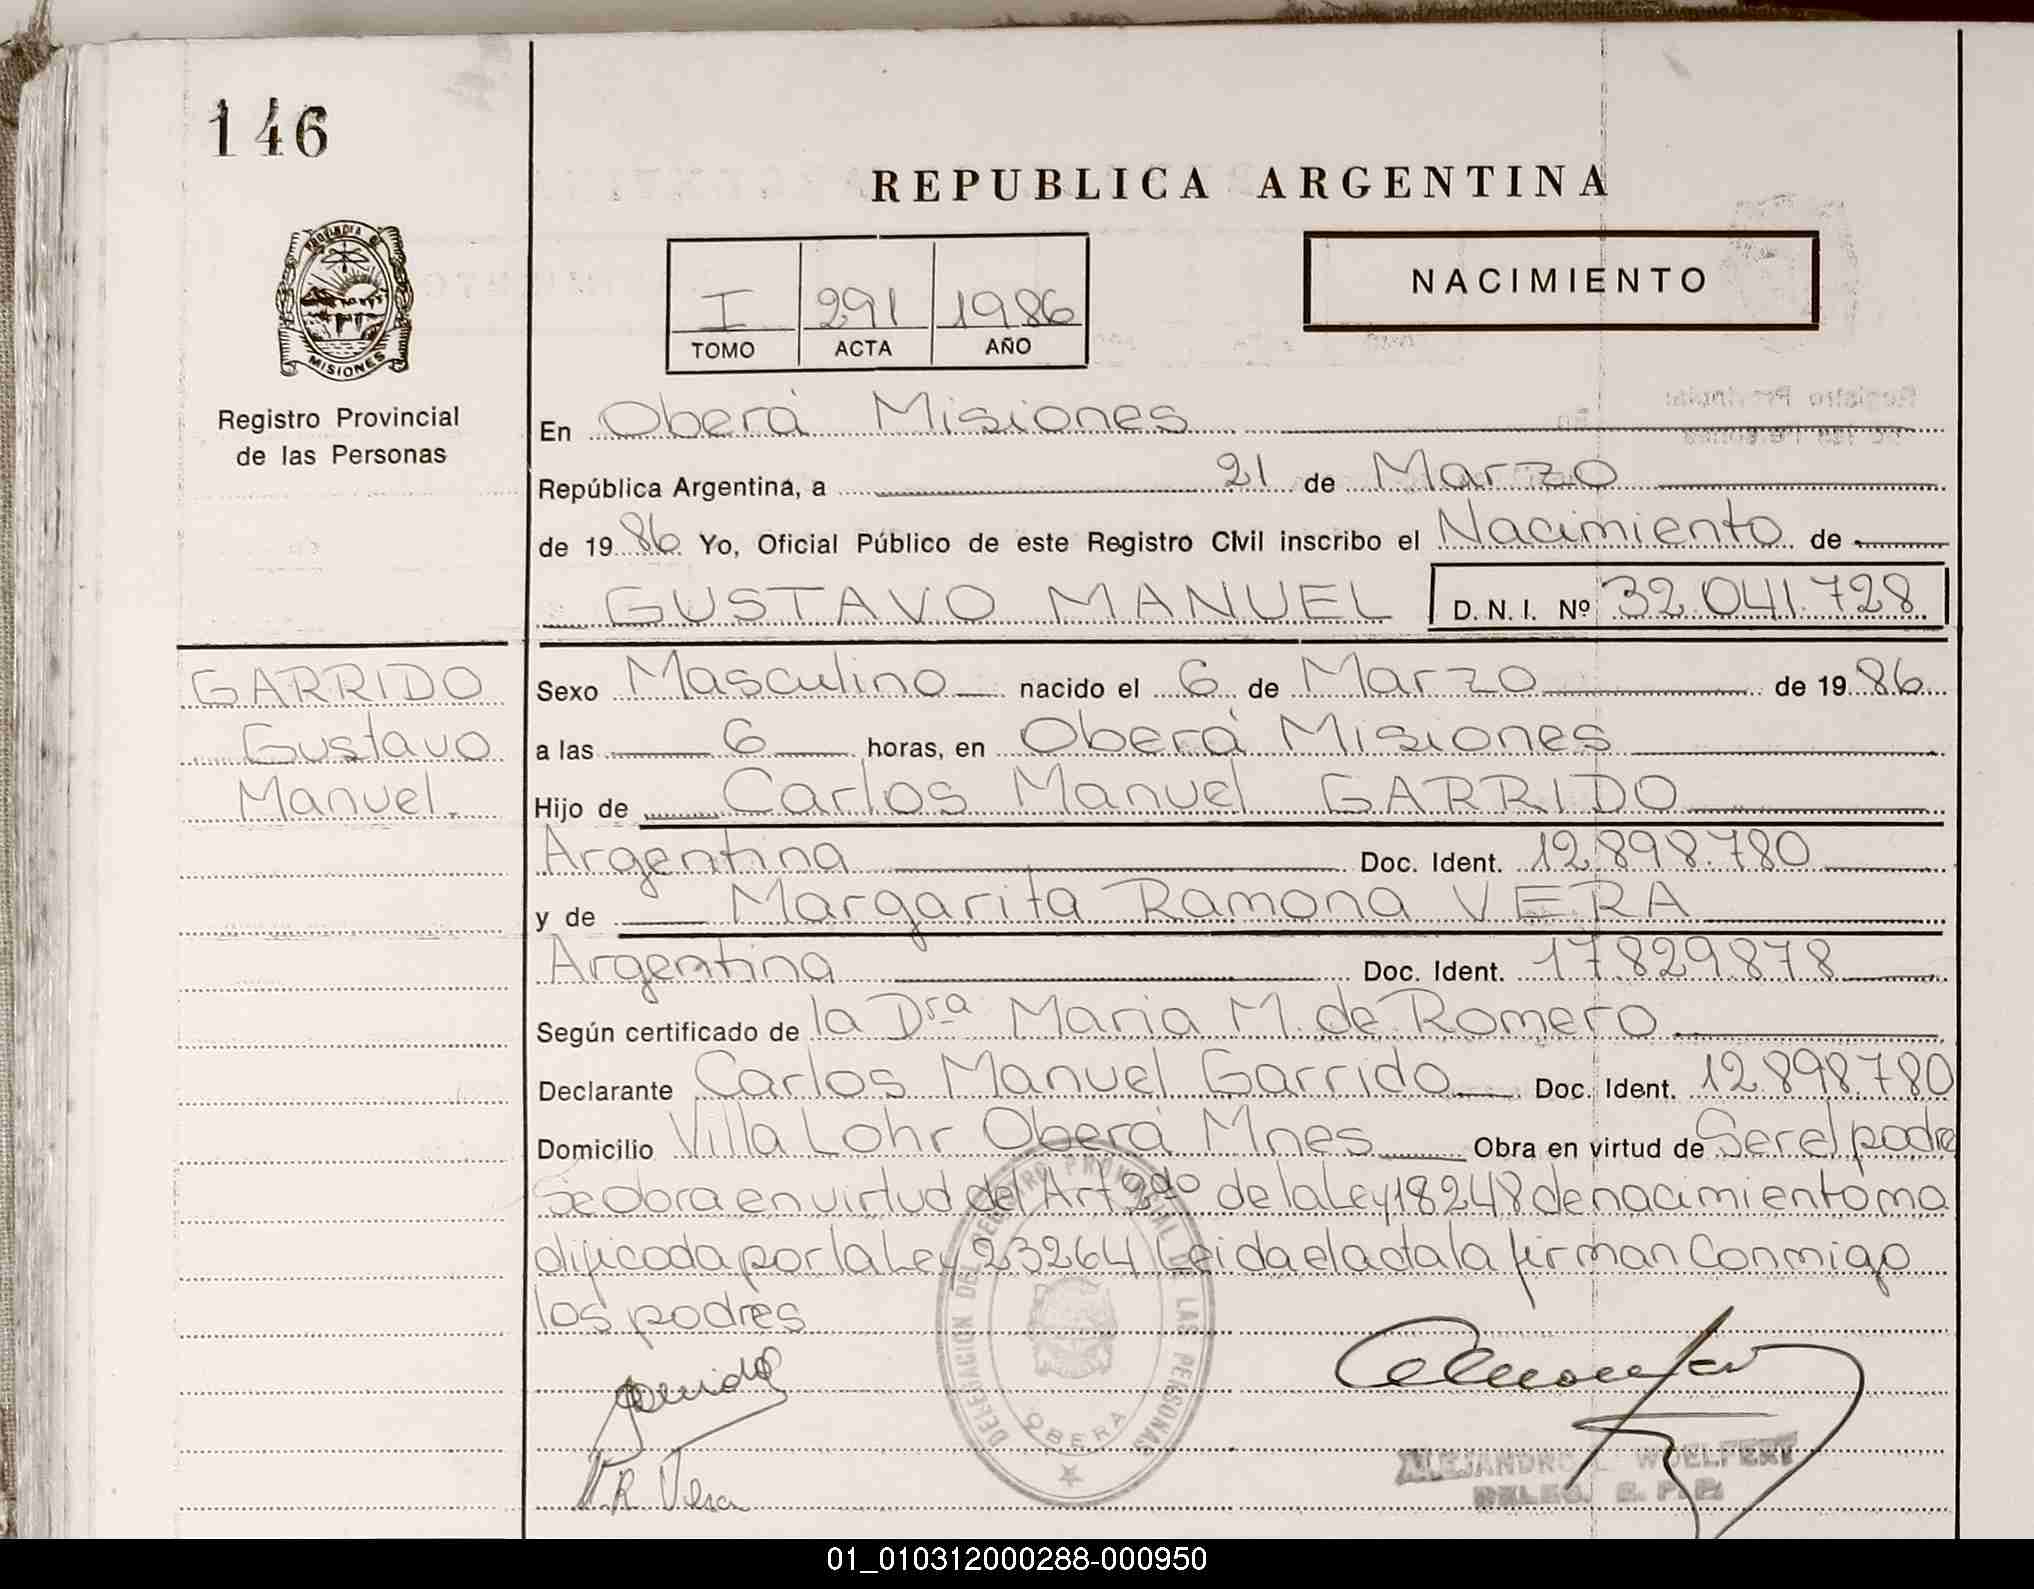 146
REPUBLICA ARGENTINA
PROVINCIA DE
MISIONES
NACIMIENTO
I 291 1986
TOMO ACTA AÑO
Registro Provincial
de las Personas
En Oberá Misiones
República Argentina, a 21 de Marzo
de 1986 Yo, Oficial Público de este Registro Civil inscribo el Nacimiento de
GUSTAVO MANUEL D. N. I. Nº 32.041.728
GARRIDO
Gustavo
Manuel.
Sexo Masculino nacido el 6 de Marzo de 1986
a las 6 horas, en Oberá Misiones
Hijo de Carlos Manuel GARRIDO
Argentina Doc. Ident. 12.898.780
y de Margarita Ramona VERA
Argentina Doc. Ident. 17.829.878
Según certificado de la Dra Maria M. de Romero
Declarante Carlos Manuel Garrido Doc. Ident. 12.898.780
Domicilio Villa Lohr Oberá Mnes Obra en virtud de Ser el padre
Se obra en virtud del Art 2do de la Ley 18248 de nacimiento mo
dificada por la Ley 23264 Leida el acta la firman Conmigo
los padres
DELEGACION DEL REGISTRO PROVINCIAL DE LAS PERSONAS
OBERA
M.R. Vera
ALEJANDRO WOELFERT
DELEG. R. P. P.
01_010312000288-000950